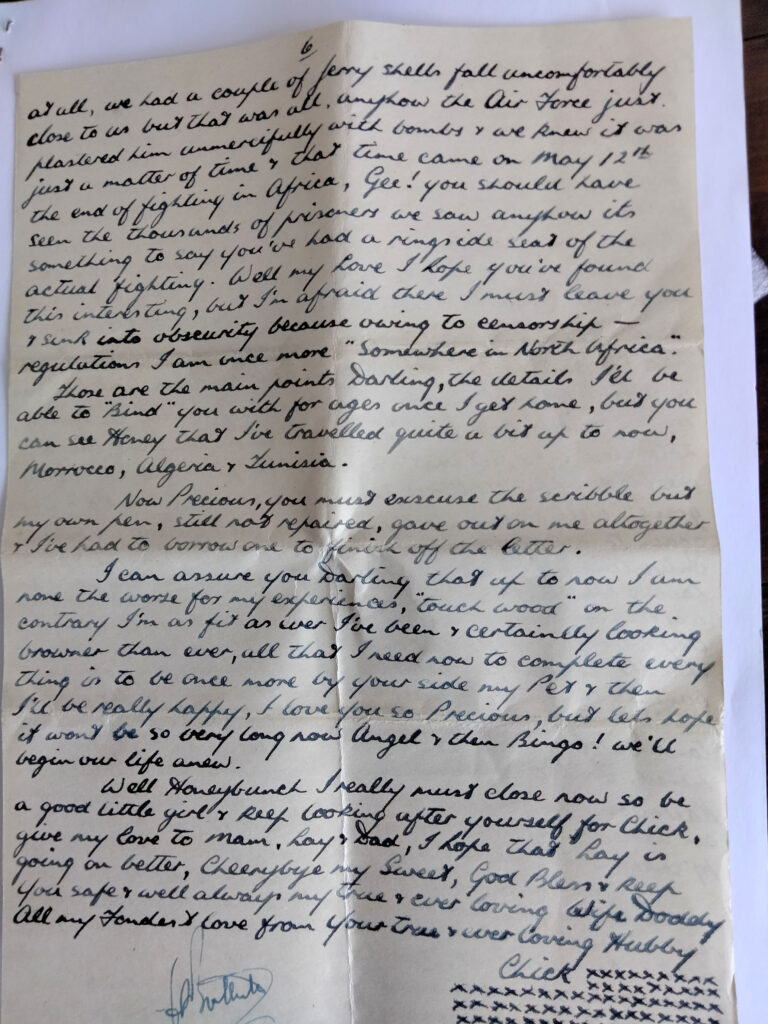 6
at all, we had a couple of Jerry shells fall uncomfortably
close to us but that was all, anyhow the Air Force just
plastered him unmercifully with bombs & we knew it was
just a matter of time & that time came on May 12th
the end of fighting in Africa, Gee! you should have
seen the thousands of prisoners we saw anyhow its
something to say you've had a ringside seat of the
actual fighting. Well my Love I hope you've found
this interesting, but I'm afraid there I must leave you
& sink into obscurity because owing to censorship —
regulations I am once more "Somewhere in North Africa".
Those are the main points Darling, the details I'll be
able to "Bind" you with for ages once I get home, but you
can see Honey that I've travelled quite a bit up to now,
Morrocco, Algeria & Tunisia.
Now Precious, you must exscuse the scribble but
my own pen, still not repaired, gave out on me altogether
& I've had to borrow one to finish off the letter.
I can assure you Darling that up to now I am
none the worse for my experiences, "touch wood" on the
contrary I'm as fit as ever I've been & certainly looking
browner than ever, all that I need now to complete every
thing is to be once more by your side my Pet & then
I'll be really happy, I love you so Precious, but lets hope
it won't be so very long now Angel & then Bingo! we'll
begin our life anew.
Well Honeybunch I really must close now so be
a good little girl & keep looking after yourself for Chick,
give my love to Mam, Lay & Dad, I hope that Lay is
going on better, Cheerybye my Sweet, God Bless & keep
you safe & well always my true & ever loving Wife Doddy
All my Fondest love from your true & ever loving Hubby
Chick xxxxxxxxxx
xxxxxxxxxxxxxxxx
xxxxxxxxxxxxxxxx